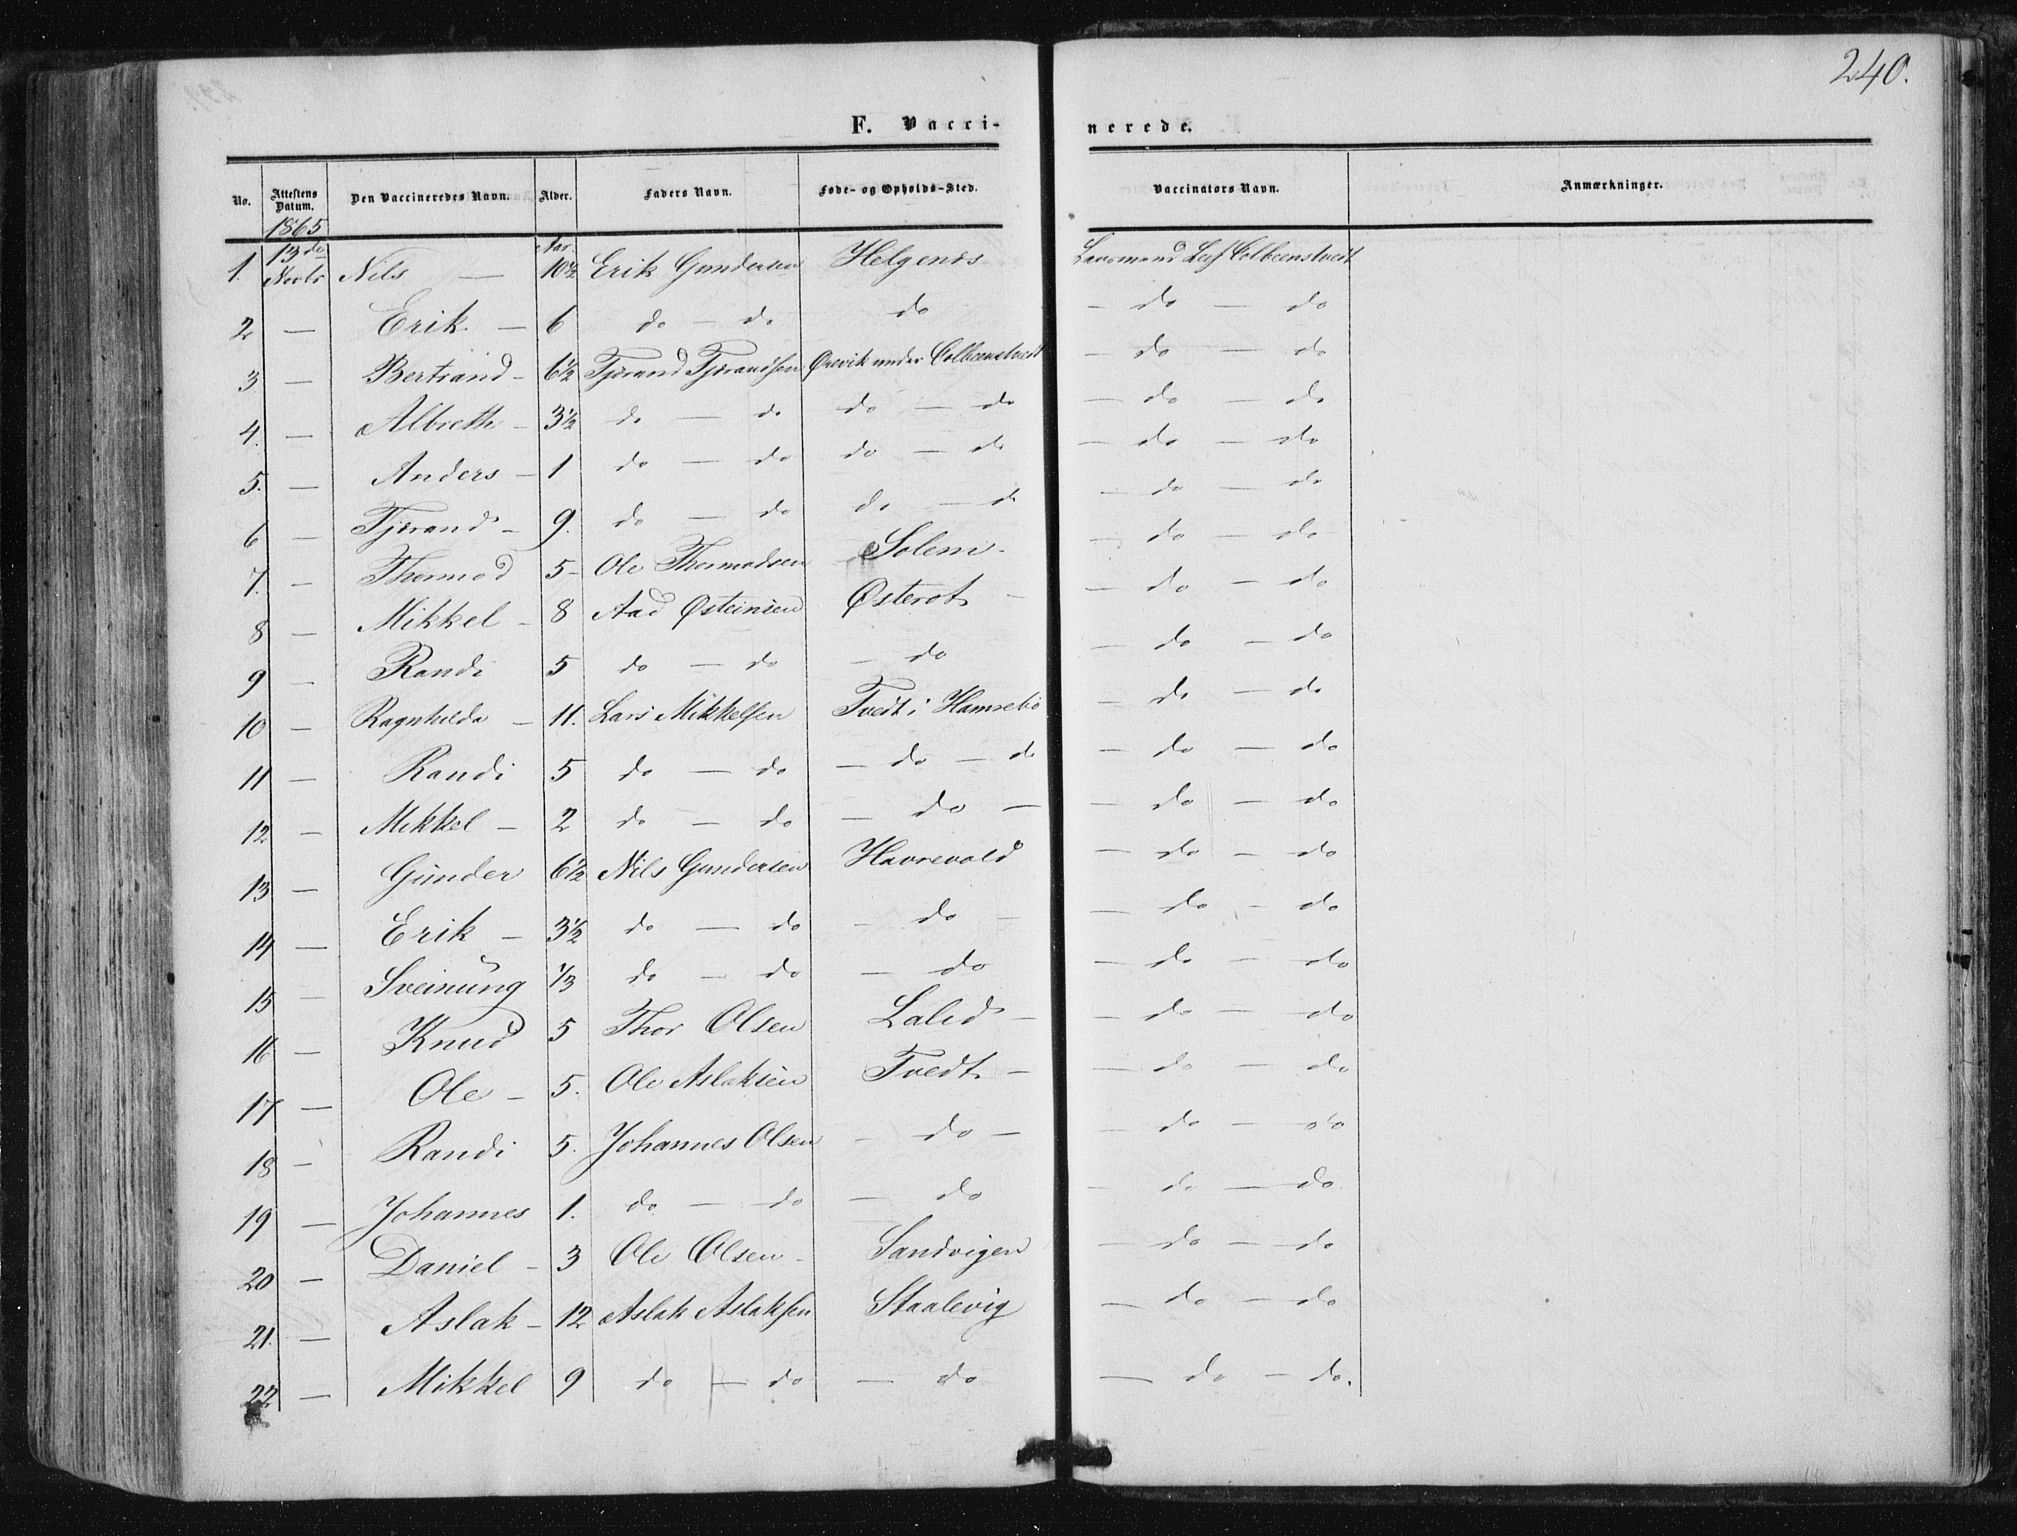 240.
F. Vacci- nerede.
No. Attestens Datum. Den Vaccineredes Navn. Alder. Faders Navn. Føde- og Opholds-Sted. Vaccinators Navn. Anmærkninger.
1865
1. 13de Novbr Nils — Aar 10½ Erik Gundersen Helgenes Lensmand Leif Colbeenstvedt
2 — Erik — 6 do — do do — do — do
3 — Bertrand — 6½ Tjerand Tjerandsen Ørevik under Colbeenstvedt — do — do
4. — Albreth — 3½ do — do do — do — do — do
5. — Anders — 1 do — do do — do — do — do
6 — Tjerand — 9. do — do do — do — do — do
7. — Thormod 5 — Ole Thormodsen Solem — do — do
8 — Mikkel — 8 Aad Østeinsen Østerot — — do — do
9 — Randi 5 do — do — do — do — do
10 — Ragnhilda — 11. Lars Mikkelsen Tvedt i Hamrebø — do — do
11 — Randi 5 do — do — do — do — do — do
12 — Mikkel — 2 do — do — do — — do — do
13 — Gunder 6½ Nils Gundersen Havrevold — do — do
14 — Erik — 3½ do — do — do — — do — do
15 — Sveinung 1/3 do — do — do — do — do
16 — Knud 5 Thor Olsen Lalid — — do — do
17 — Ole — 5. Ole Aslaksen Tvedt — — do — do
18 — Randi 5. Johannes Olsen — do — — do — do
19 — Johannes 1. do — do — do — do — do
20 — Daniel — 3 Ole Olsen — Sandvigen — do — do
21. — Aslak — 12 Aslak Aslaksen Staalevig — do — do
22 — Mikkel 9 do — do — do — do — do.